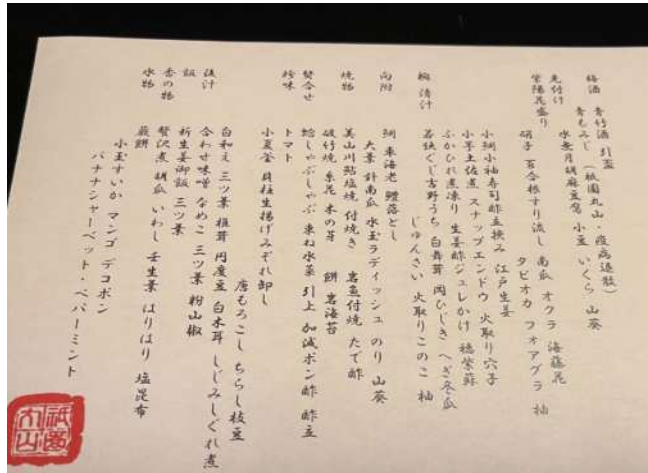 梅酒 青竹酒 引盃
青もみじ (祇園丸山・疫病退散)
先付け 水無月胡麻豆腐 小豆 いくら 山葵
紫陽花盛り
硝子 百合根すり流し 南瓜 オクラ 海藤花
タピオカ フォアグラ 柚
小鯛小袖寿司酢立挟み 江戸生姜
小芋土佐煮 スナップエンドウ 火取り穴子
ふかひれ煮凍り 生姜酢ジュレかけ 穂紫蘇
椀 清汁 若狭ぐじ吉野うち 白舞茸 岡ひじき へぎ冬瓜
じゅんさい 火取りこのこ 柚
向附 鯛 車海老 鱧落とし
大葉 針南瓜 水玉ラディッシュ のり 山葵
焼物 美山川鮎塩焼 付焼き 岩魚付焼 たで酢
破竹焼 糸花 木の芽 餅 岩海苔
焚合せ 鱧しゃぶしゃぶ 束ね水菜 引上 加減ポン酢 酢立
珍味 トマト
小夏釜 貝柱生揚げみぞれ卸し
唐もろこし ちらし枝豆
白和え 三ツ葉 椎茸 阿度豆 白木耳 しじみしぐれ煮
浅汁 合わせ味噌 なめこ 三ツ葉 粉山椒
飯 新生姜御飯 三ツ葉
香の物 贅沢煮 胡瓜 いわし 壬生菜 はりはり 塩昆布
水物 蕨餅
小玉すいか マンゴ デコポン
バナナシャーベット・ペパーミント
祇園丸山